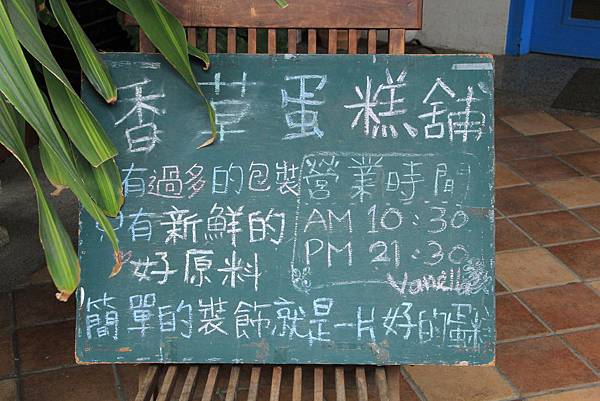 香草蛋糕舖
有過多的包裝
只有新鮮的
好原料
營業時間
AM 10:30
PM 21:30
Vanilla
簡單的裝飾就是一片好的蛋糕